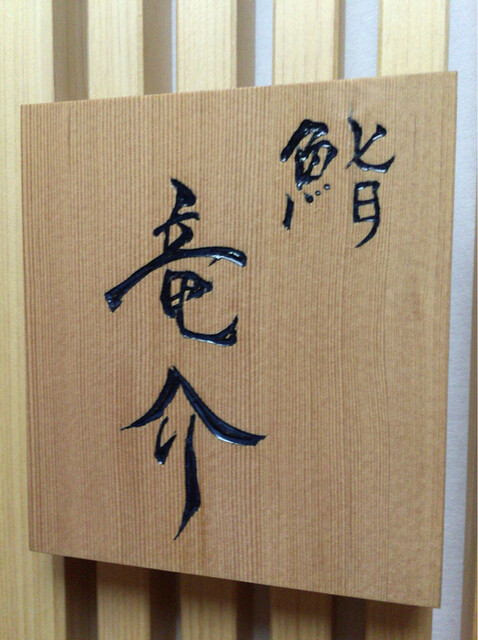 鮨
竜介